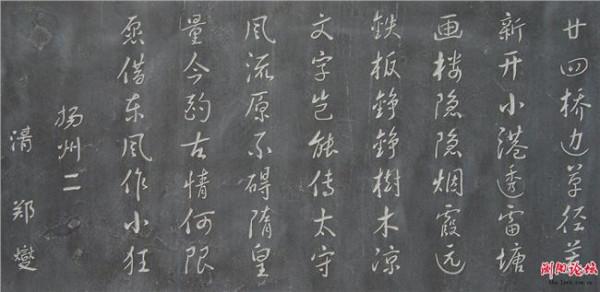 廿四桥边草径荒
新开小港透雷塘
画楼隐隐烟霞远
铁板铮铮樹木凉
文字岂能传太守
风流原不碍隋皇
量今酌古情何限
愿借东风作小狂
扬州二
清 郑燮
浏阳论坛